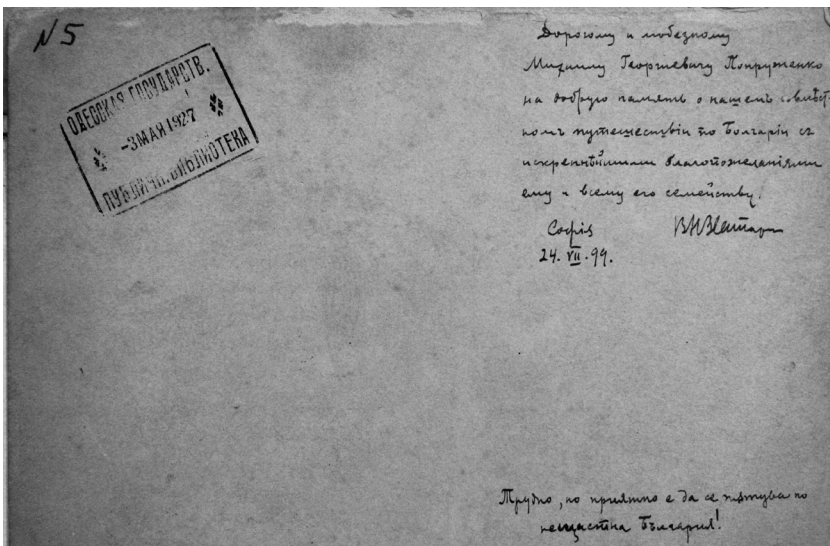 N 5
ОДЕССКАЯ ГОСУДАРСТВ.
-3 МАЯ 1927
ПУБЛИЧН. БИБЛИОТЕКА
Дорогому и любезному
Михаилу Георгиевичу Попруженко
на добрую память о нашемъ совмѣст
номъ путешествіи по Болгаріи съ
искреннѣйшими благопожеланіями
ему и всему его семейству.
Софія
24. VII. 99.
Трудно, но приятно е да се пѫтува по
нещастна България!